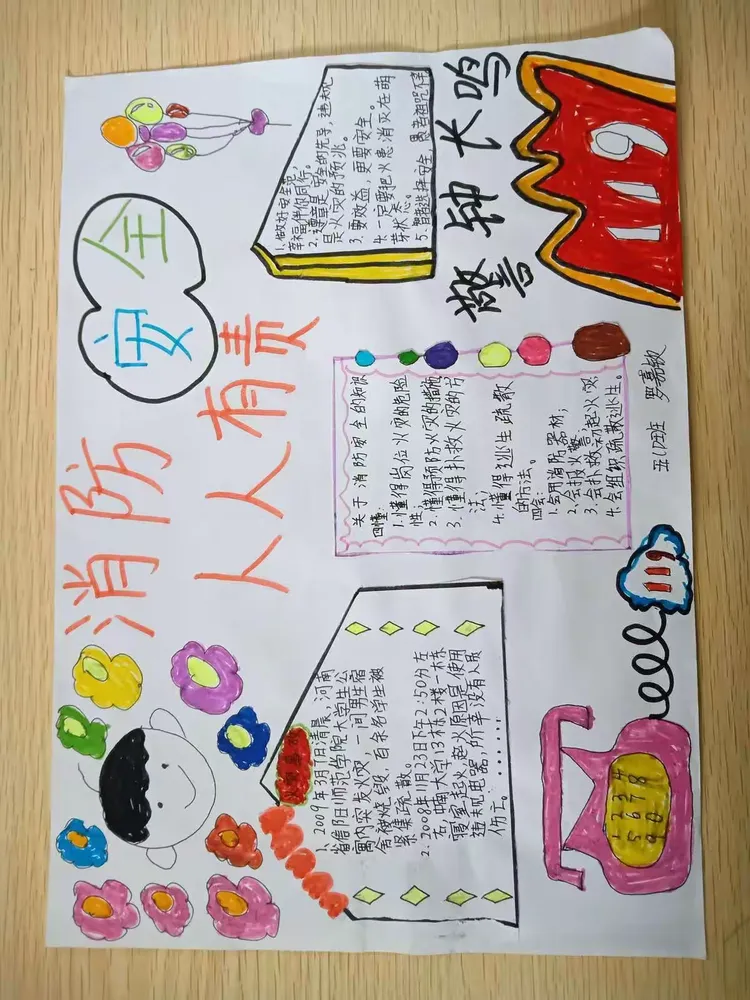 消防安全
人人有责
1. 2009年3月1日清晨,河南
省信阳师范学院大学生公
寓内突发火灾,一间男生宿
舍被烧毁,百余名学生被
紧集疏散。
2. 2008年11月23日下午2:50分左
右,中南大学13栋2楼一栋
寝室起火,起火原因是使用
违规电器,所幸没有人员
伤亡。......
关于消防安全的知识
四懂:
1.懂得岗位火灾的危险
性;
2.懂得预防火灾的措施
3.懂得扑救火灾的方
法;
4.懂得逃生疏散
的方法。
四会:
1.会用消防器材;
2.会报火警
3.会扑救初起火灾
4.会组织疏散逃生。
1.做好安全
幸福伴你同行。
2.遵章是安全的先导,违规
是火灾的预兆。
3.要效益,更要安全。
4.一定要把火患消灭在萌
芽状态。
5.智者选择安全 愚者
警钟长鸣
119
1234
5678
90
119
班 罗嘉敏